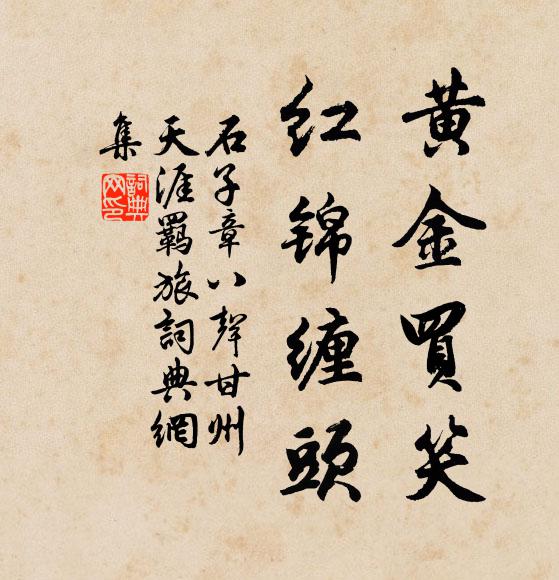 黄金買笑
红锦缠頭
石子章八聲甘州
天涯羁旅詞典網
集
詞典
网印